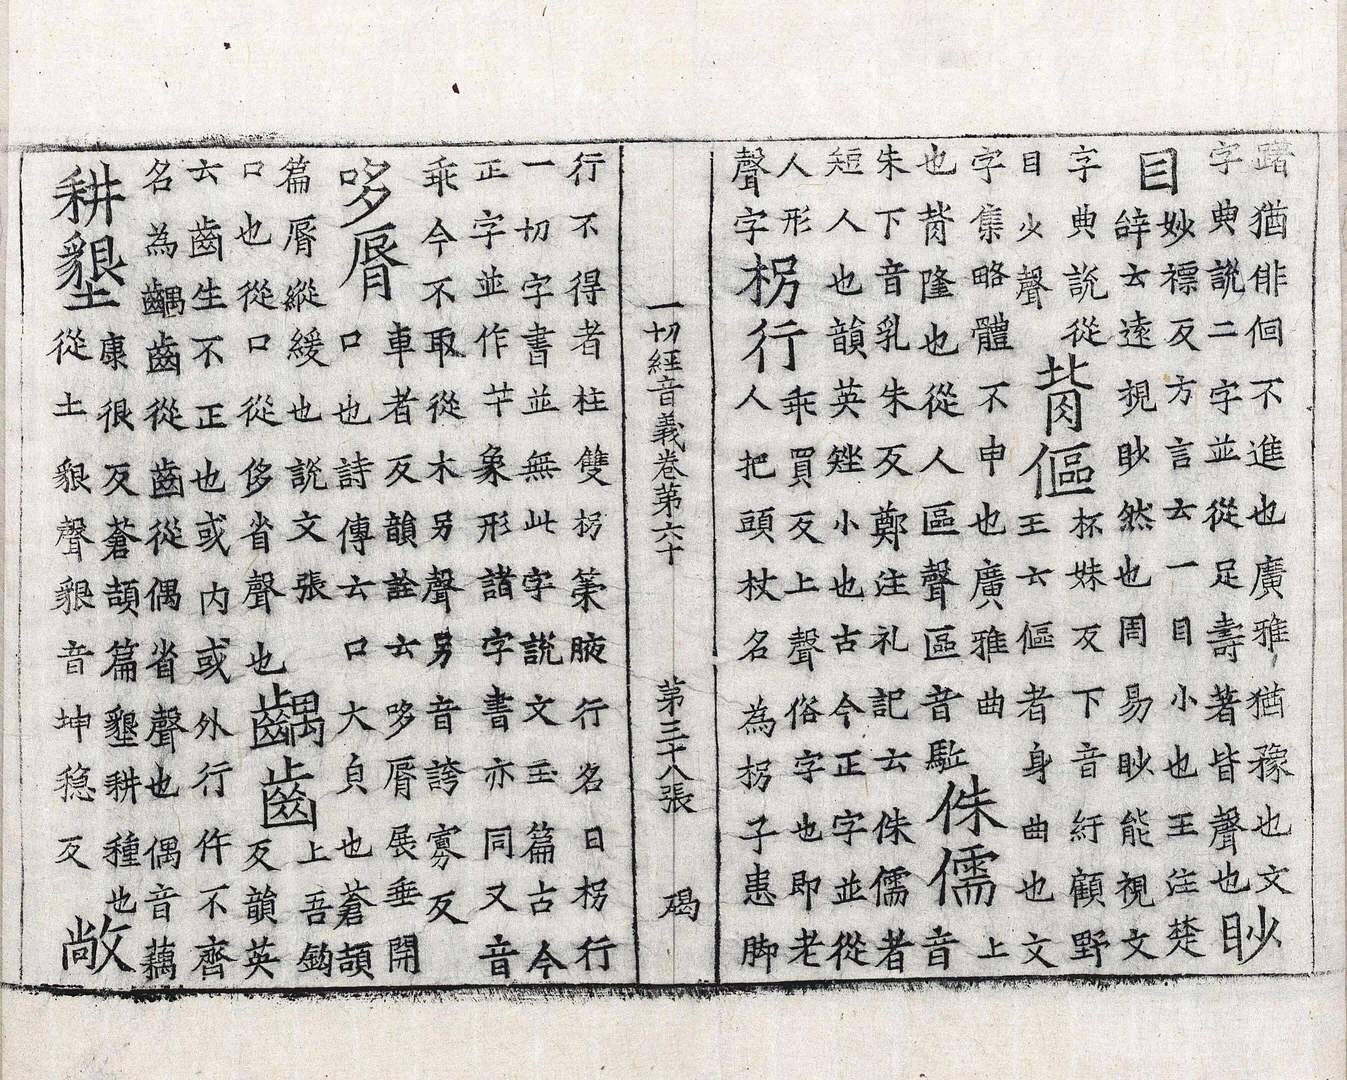 躇猶俳佪不進也廣雅猶豫也文
字典說二字並從足壽著皆聲也眇
目妙褾反方言云一目小也王注楚
辝云遠視眇然也周易眇能視文
字典說從
目火聲䏽傴上杯妹反下音紆顧野王云傴者身曲也文
字集略體不申也廣雅曲
也䏽隆也從人區聲區音駈侏儒音
朱下音乳朱反鄭注礼記云侏儒者
短人也韻英矬小也古今正字並從
人形聲字枴行乖買反上聲俗字也即老
人把頭杖名為枴子患脚
行不得者柱雙枴築腋行名曰枴行
一切字書並無此字說文玉篇古今
正字並作𠁥象形諸字書亦同又音
乖今不取從木另聲另音誇寡反
哆脣車者反韻詮云哆脣展垂開
口也詩傳云口大皃也蒼頡
篇脣縱緩也說文張
口也從口從侈省聲也齵齒上吾鉤
反韻英
云齒生不正也或內或外行伴不齊
名為齵齒從齒從偶省聲也偶音藕
耕墾康很反蒼頡篇墾耕種也
從土豤聲豤音坤穏反敞
一切經音義卷第六十　第三十八張　碣